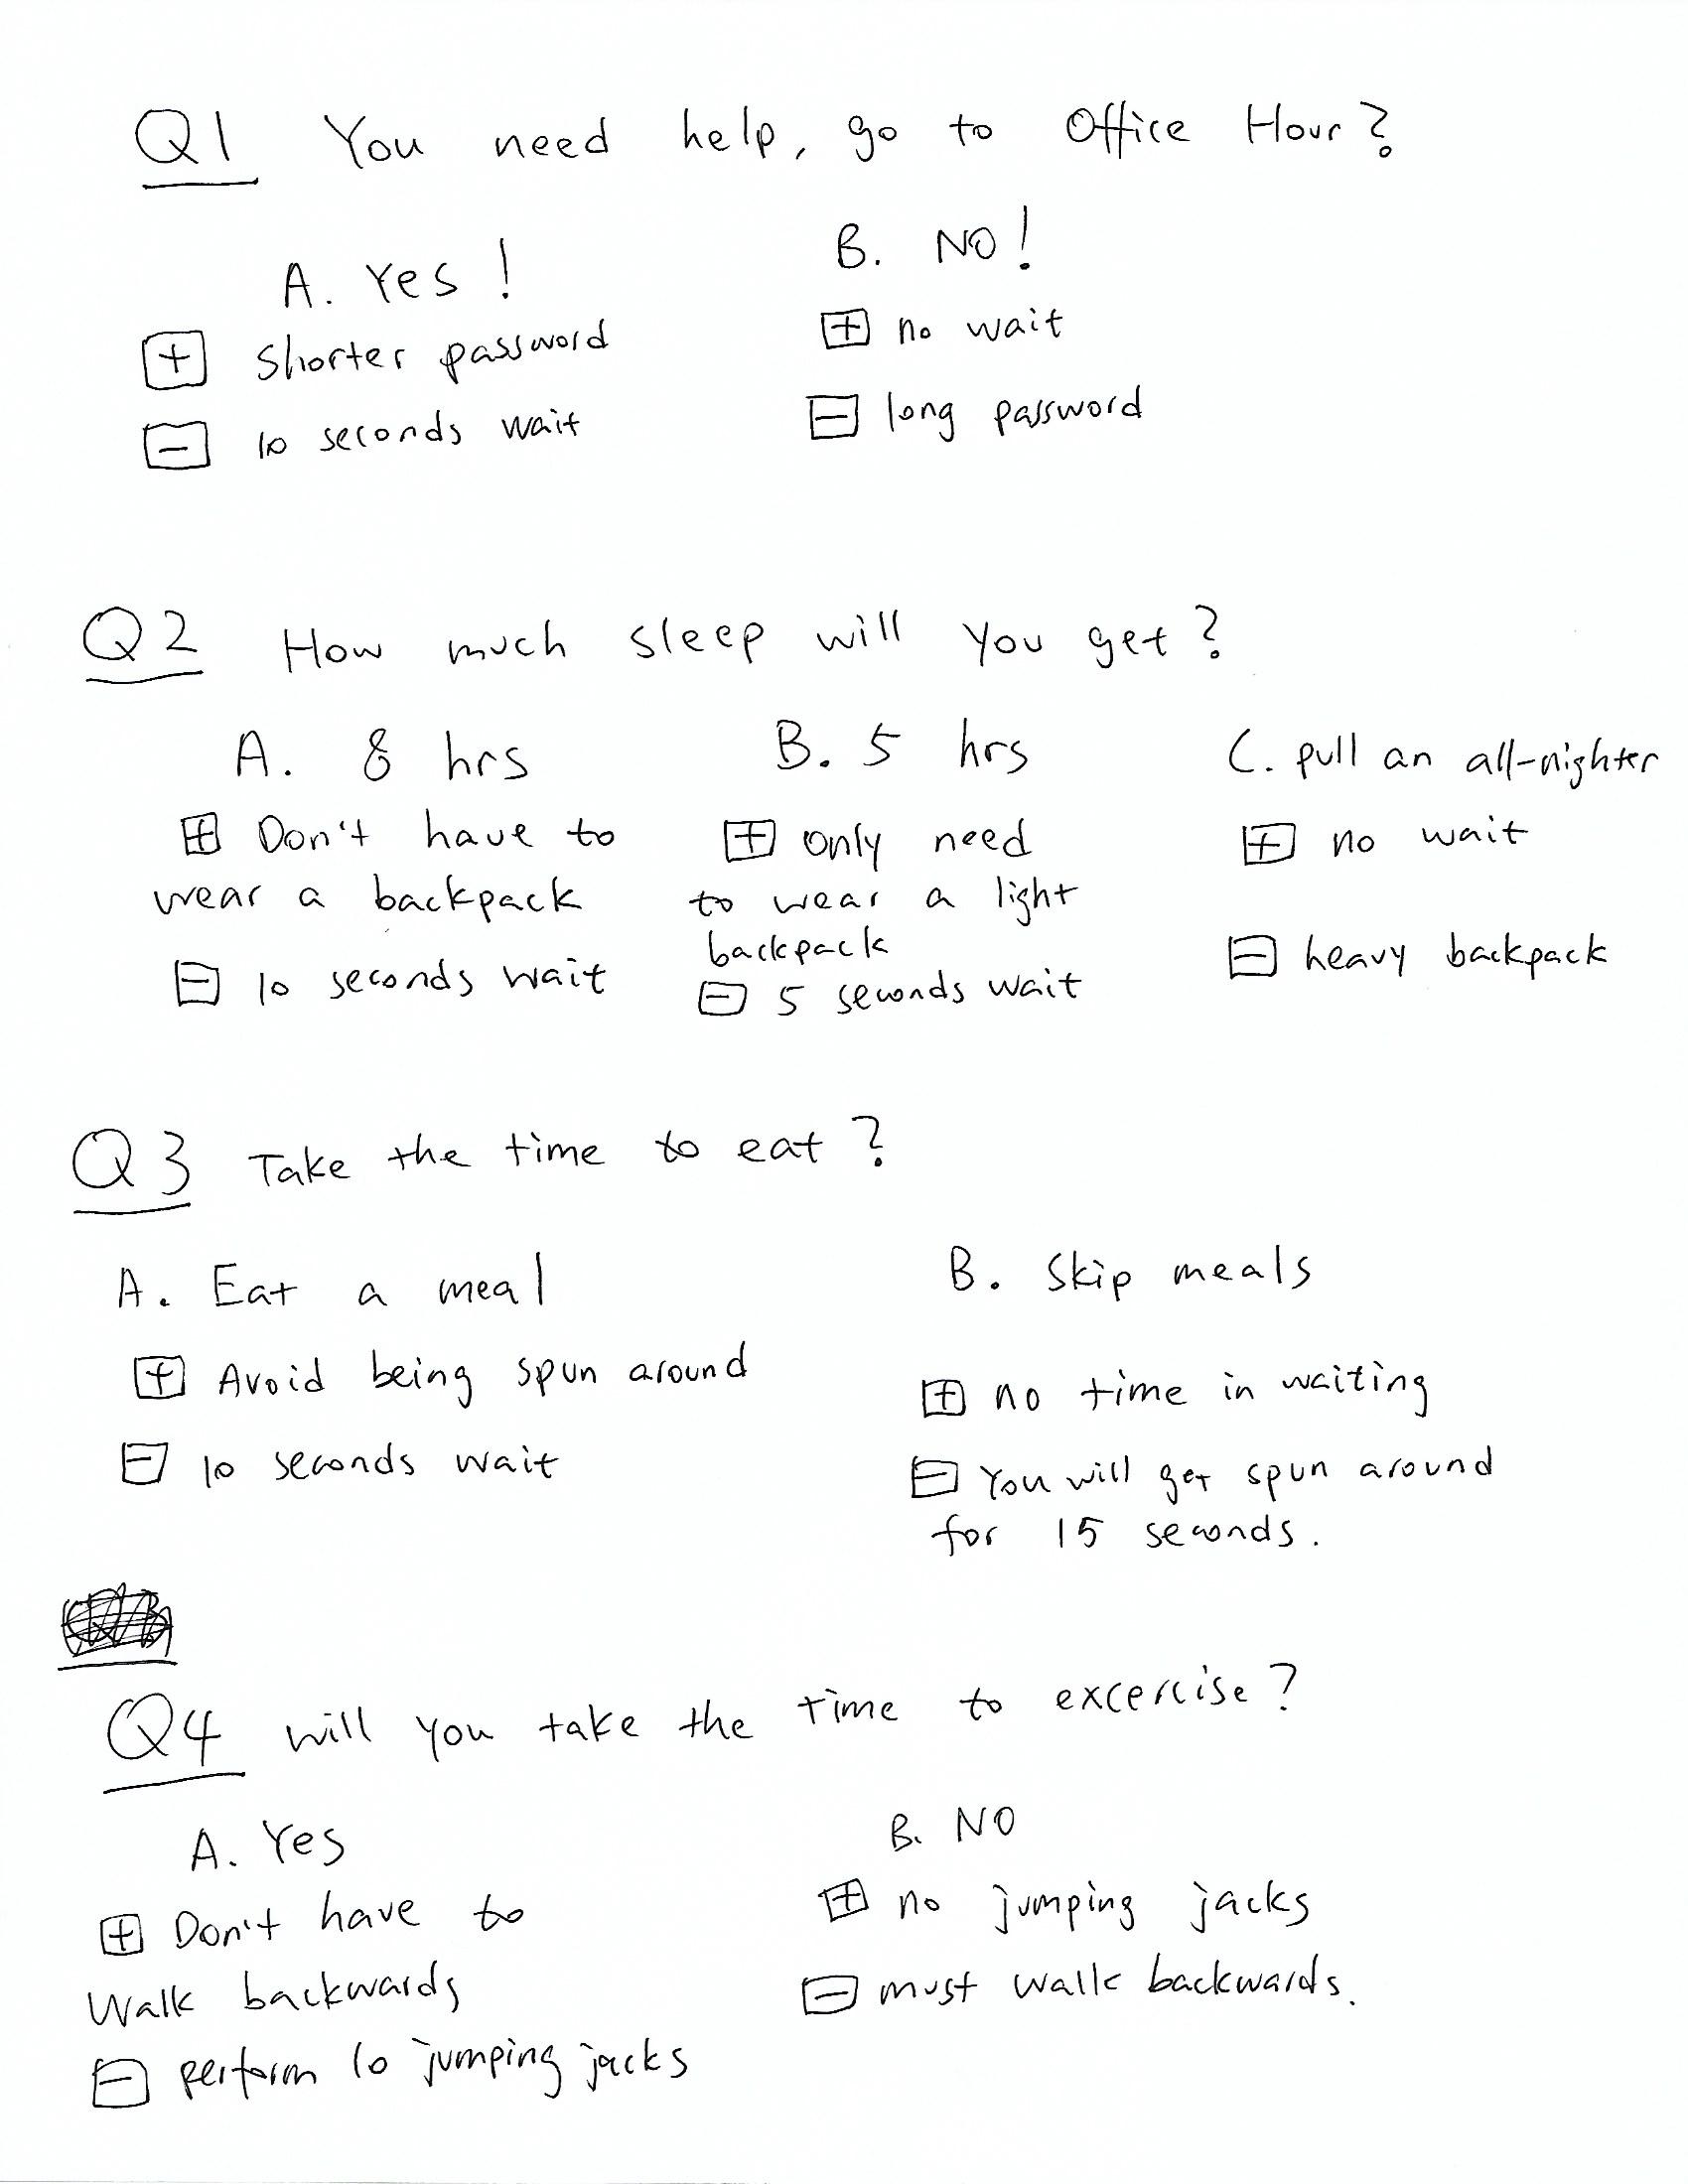 Q1 You need help, go to Office Hour?
A. Yes!
+ Shorter password
- 10 seconds wait
B. NO!
+ no wait
- long password
Q2 How much sleep will you get?
A. 8 hrs
+ Don't have to
wear a backpack
- 10 seconds wait
B. 5 hrs
+ only need
to wear a light
backpack
- 5 seconds wait
C. pull an all-nighter
+ no wait
- heavy backpack
Q3 Take the time to eat?
A. Eat a meal
+ Avoid being spun around
- 10 seconds wait
B. Skip meals
+ no time in waiting
- You will get spun around
for 15 seconds.
Q4 will you take the time to excercise?
A. Yes
+ Don't have to
Walk backwards
- perform 10 jumping jacks
B. NO
+ no jumping jacks
- must walk backwards.